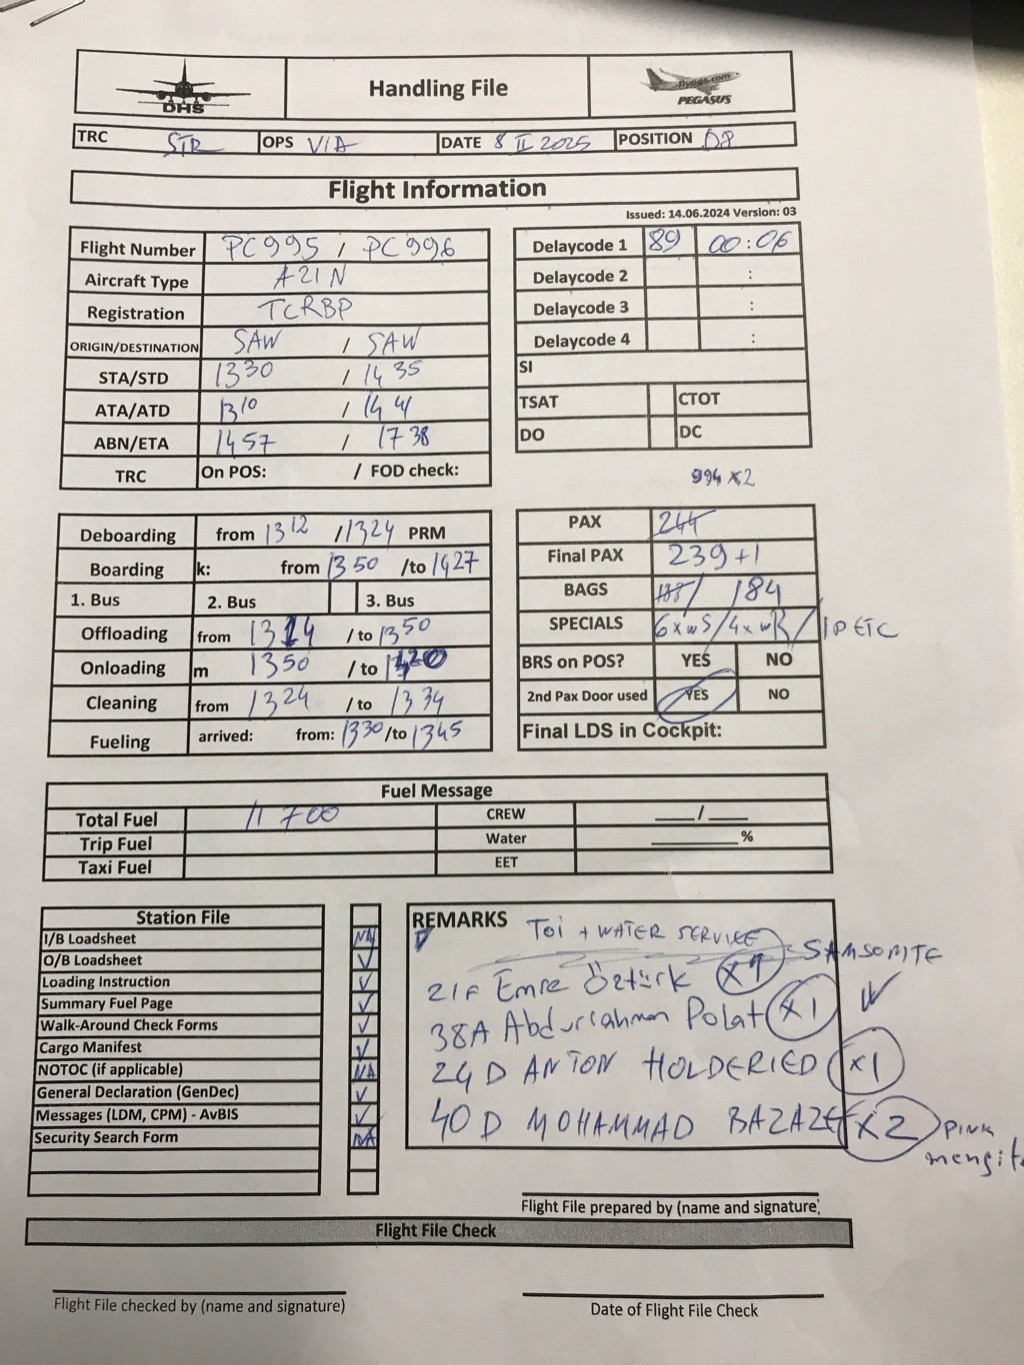 DHS
Handling File
flypgs.com
PEGASUS
TRC STR OPS VIA DATE 8 II 2025 POSITION D8
Flight Information
Issued: 14.06.2024 Version: 03
Flight Number PC995 / PC996
Aircraft Type A21N
Registration TCRBP
ORIGIN/DESTINATION SAW / SAW
STA/STD 1330 / 1435
ATA/ATD 1310 / 1441
ABN/ETA 1457 / 1738
TRC On POS: / FOD check:
Delaycode 1 89 00:06
Delaycode 2 :
Delaycode 3 :
Delaycode 4 :
SI
TSAT CTOT
DO DC
994 x2
Deboarding from 1312 /1324 PRM
Boarding k: from 1350 /to 1427
1. Bus 2. Bus 3. Bus
Offloading from 1314 / to 1350
Onloading m 1350 / to 1420
Cleaning from 1324 / to 1334
Fueling arrived: from: 1330 /to 1345
PAX 244
Final PAX 239+1
BAGS 188/ 184
SPECIALS 6xWS/4xWR/1PETC
BRS on POS? YES NO
2nd Pax Door used YES NO
Final LDS in Cockpit:
Fuel Message
Total Fuel 11 700 CREW ___/___
Trip Fuel Water ______%
Taxi Fuel EET
Station File
I/B Loadsheet NA
O/B Loadsheet ✓
Loading Instruction ✓
Summary Fuel Page ✓
Walk-Around Check Forms ✓
Cargo Manifest ✓
NOTOC (if applicable) NA
General Declaration (GenDec) ✓
Messages (LDM, CPM) - AvBIS ✓
Security Search Form NA
REMARKS TOI + WATER SERVICE
21F Emre Öztürk x1 SAMSONITE
38A Abdurrahman Polat x1
24D ANTON HOLDERIED x1
40D MOHAMMAD x2 PINK
Flight File prepared by (name and signature)
Flight File Check
Flight File checked by (name and signature)
Date of Flight File Check